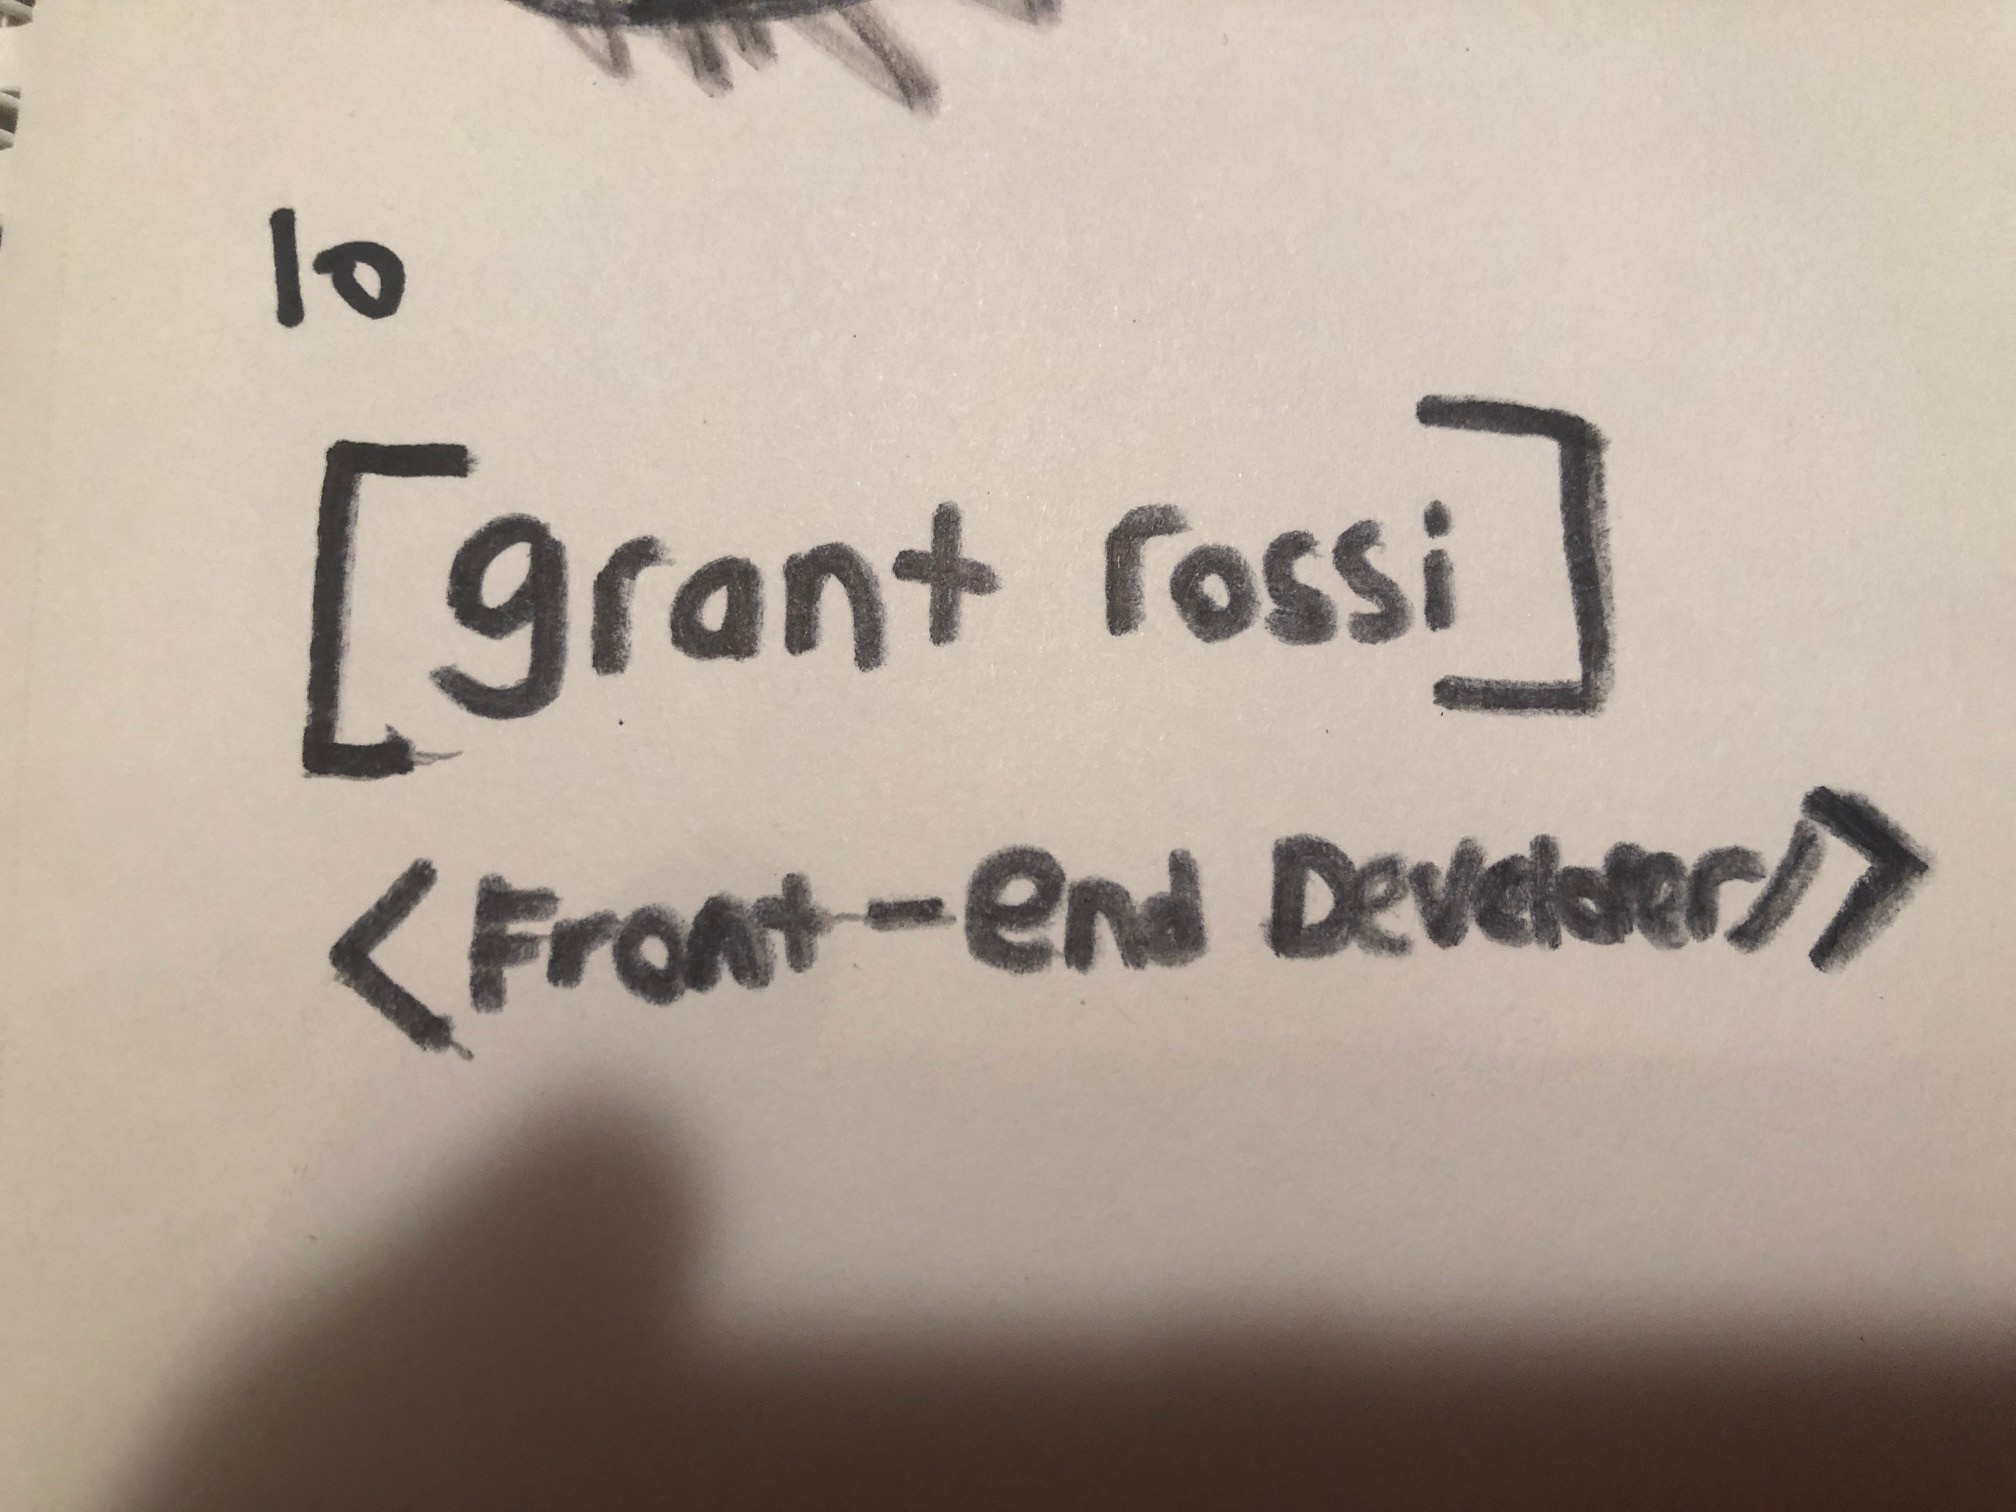 10
[grant rossi]
<Front-end Developer/>